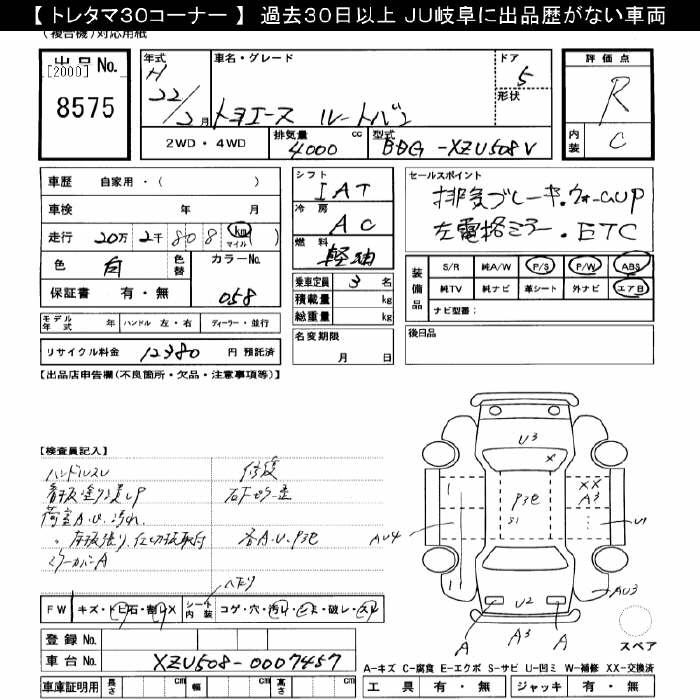 【 トレタマ30コーナー 】 過去30日以上 JU岐阜に出品歴がない車両
(複合機)対応用紙
出品 No.
[2000]
8575
年式
H
22/2月
車名・グレード
トヨエース ルートバン
ドア
5
形状
評価点
R
内装
C
2WD・4WD
排気量
4000
cc
型式
BDG-XZU508V
車歴 自家用・( )
車検 年 月
走行 20万 2千 808 km マイル ( )
色 白 色替
カラーNo.
058
保証書 有・無
モデル年式 年 ハンドル 左・右 ディーラー・並行
リサイクル料金 12380 円 預託済
シフト
IAT
冷房
AC
燃料
軽油
乗車定員 3 名
積載量 kg
総重量 kg
名変期限
月 日
セールスポイント
排気ブレーキ.ウォームUP
左電格ミラー.ETC
装備品
S/R 純A/W P/S P/W ABS
純TV 純ナビ 革シート 外ナビ エアB
ナビ型番:
後日品
【出品店申告欄(不良箇所・欠品・注意事項等)】
【検査員記入】
ハンドルスレ
修復
看板塗り潰しP
荷室A.U.汚れ.
床板張り、仕切板取付
各A.U.P色
ミラーカバーA
ヘタリ
FW キズ・トビ石・割レX
シート内装 コゲ・穴・汚レ・
・破レ・スレ
登録No.
車台No. XZU508-0007457
車庫証明用 長さ cm 幅 cm 高さ cm
U3
X
XX
A3
P3色
S1
AU4
U1
U2
AU3
A
A3
A
スペア
A-キズ C-腐食 E-エクボ S-サビ U-凹ミ W-補修 XX-交換済
工具 有・無 ジャッキ 有・無